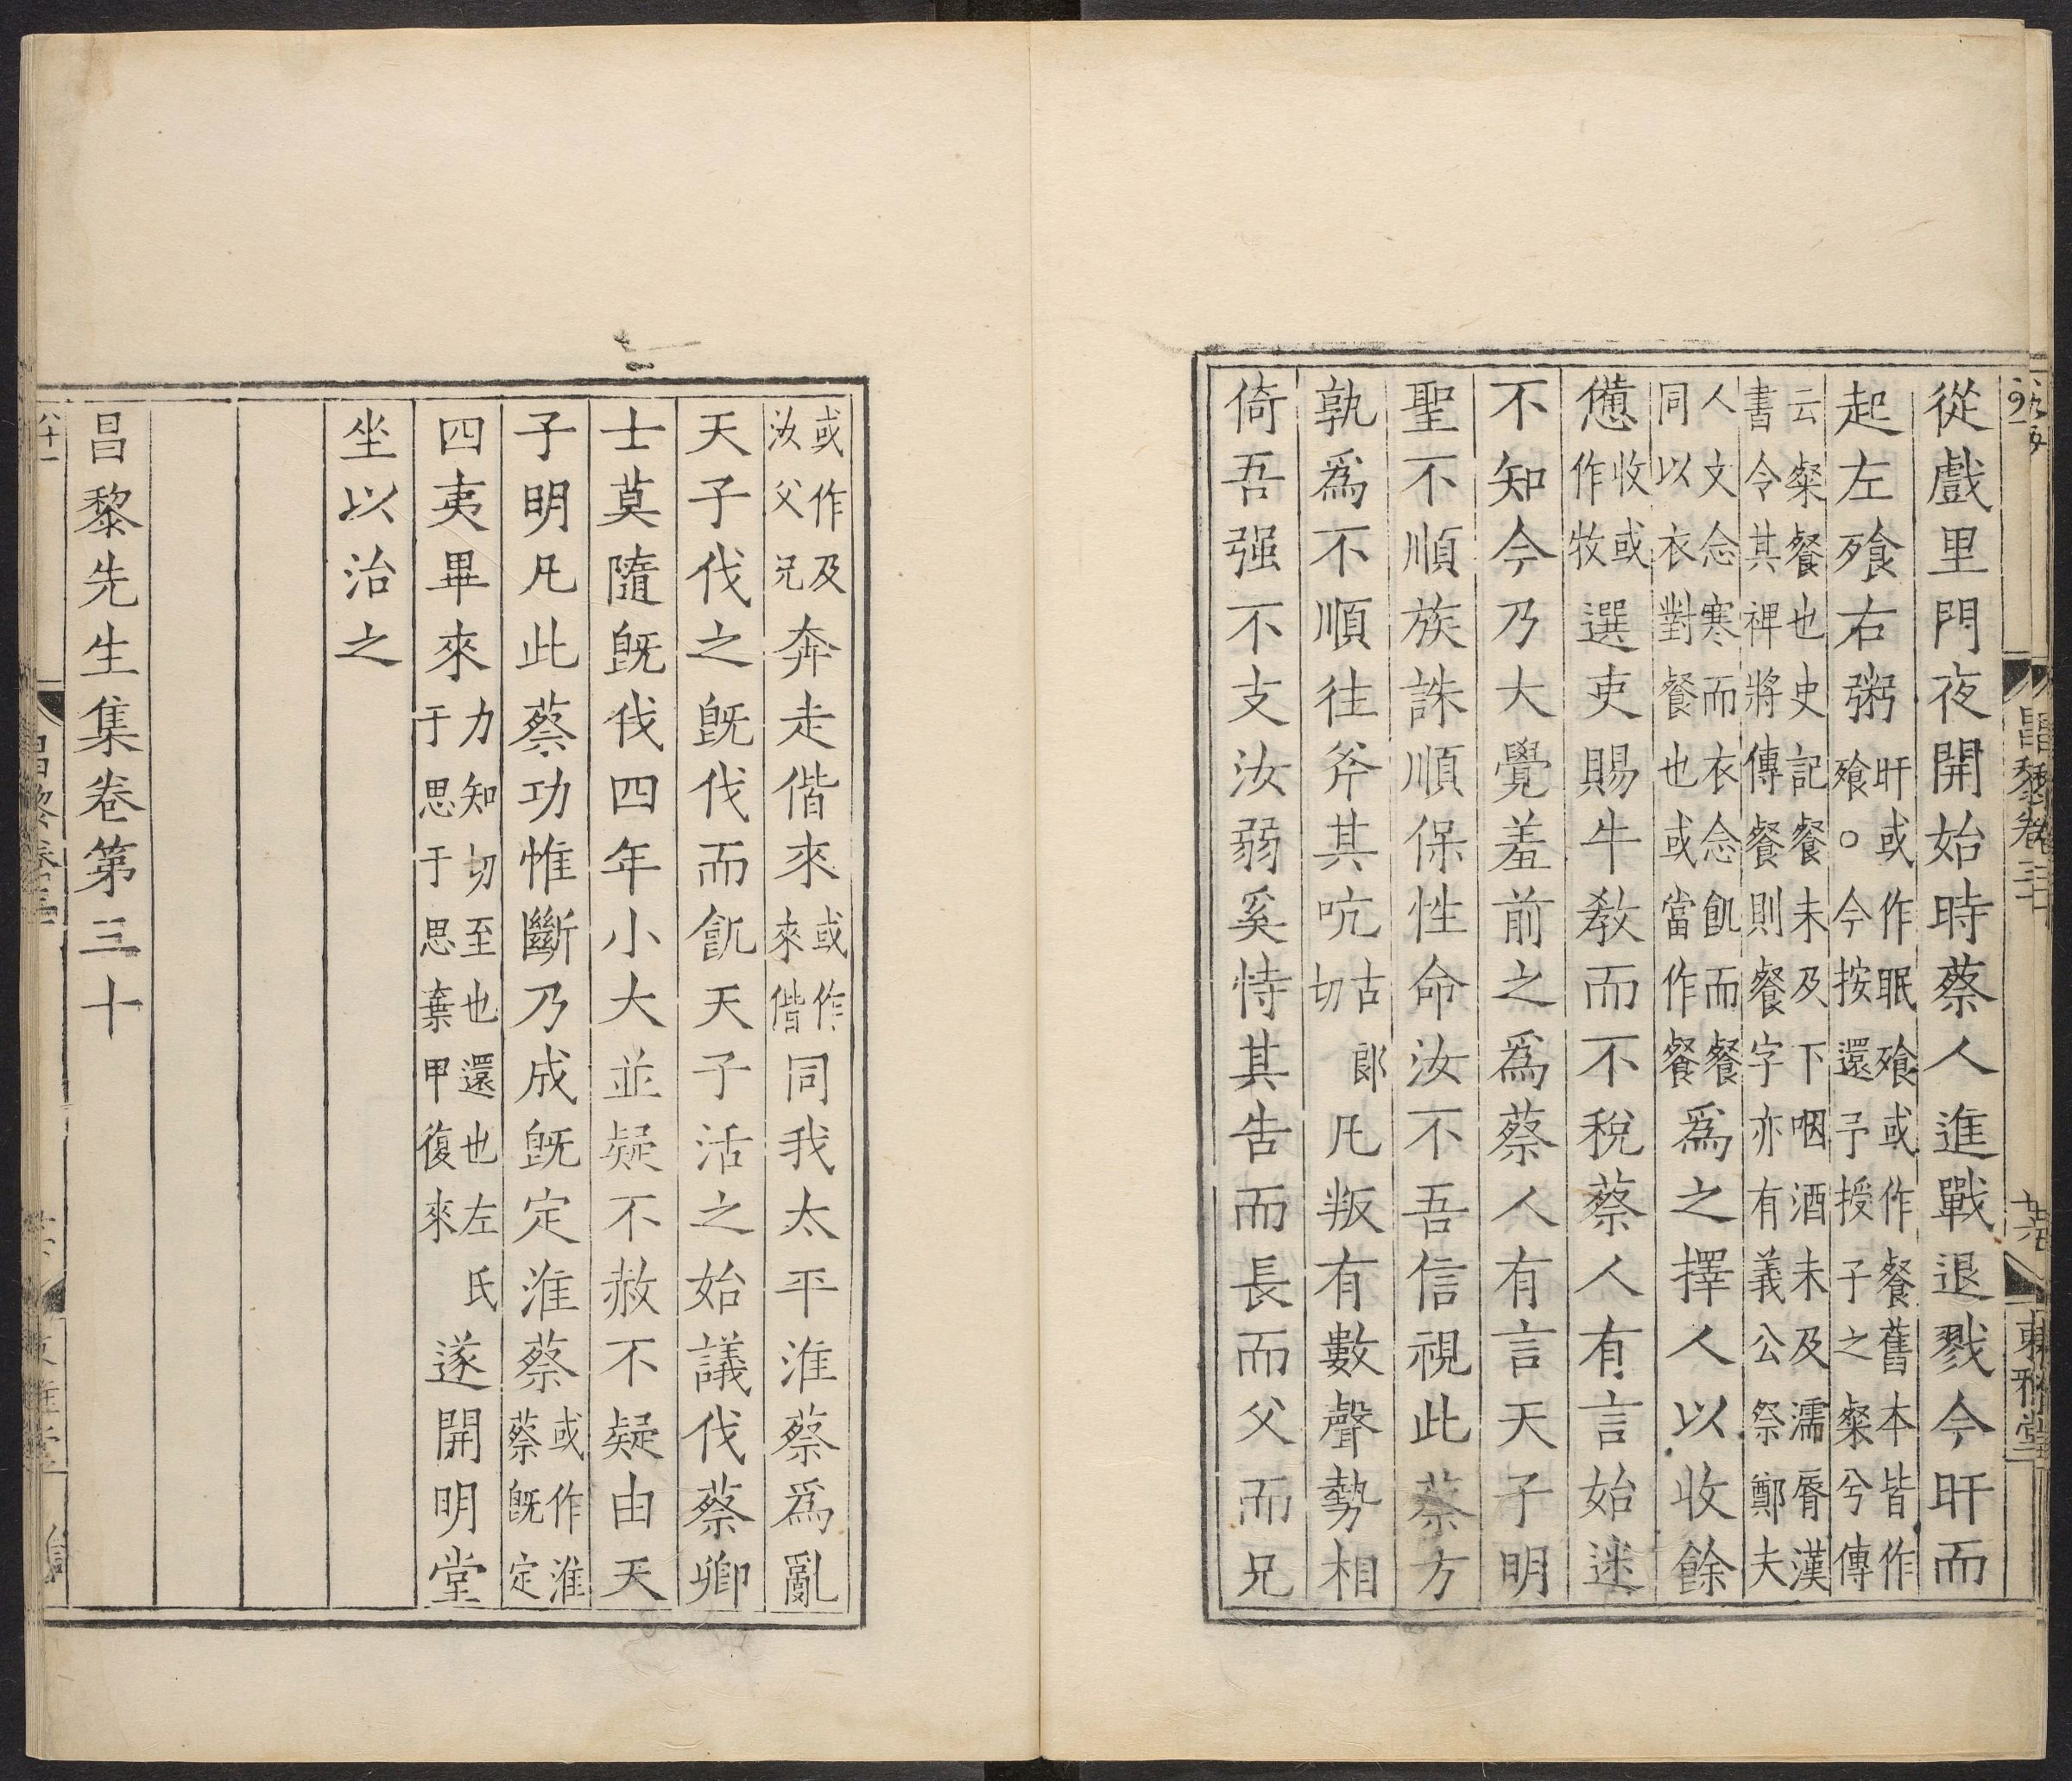 從戲里門夜開始時蔡人進戰退戮今旰而
起左飱右粥旰或作眠飱或作餐舊本皆作飱○今按還予授子之粲兮傳
云粲餐也史記餐未及下咽酒未及濡脣漢書令其裨將傳餐則餐字亦有義公祭鄭夫
人文念寒而衣念飢而餐同以衣對餐也或當作餐爲之擇人以收餘
憊收或作牧選吏賜牛教而不稅蔡人有言始迷
不知今乃大覺羞前之爲蔡人有言天子明
聖不順族誅順保性命汝不吾信視此蔡方
孰爲不順往斧其吭古郎切凡叛有數聲勢相
倚吾强不支汝弱奚恃其告而長而父而兄
昌黎卷三十
東雅堂
或作及汝父兄奔走偕來或作來偕同我太平淮蔡爲亂
天子伐之旣伐而飢天子活之始議伐蔡卿
士莫隨旣伐四年小大並疑不赦不疑由天
子明凡此蔡功惟斷乃成旣定淮蔡或作淮蔡旣定
四夷畢來力知切至也還也左氏于思于思棄甲復來遂開明堂
坐以治之
昌黎先生集卷第三十